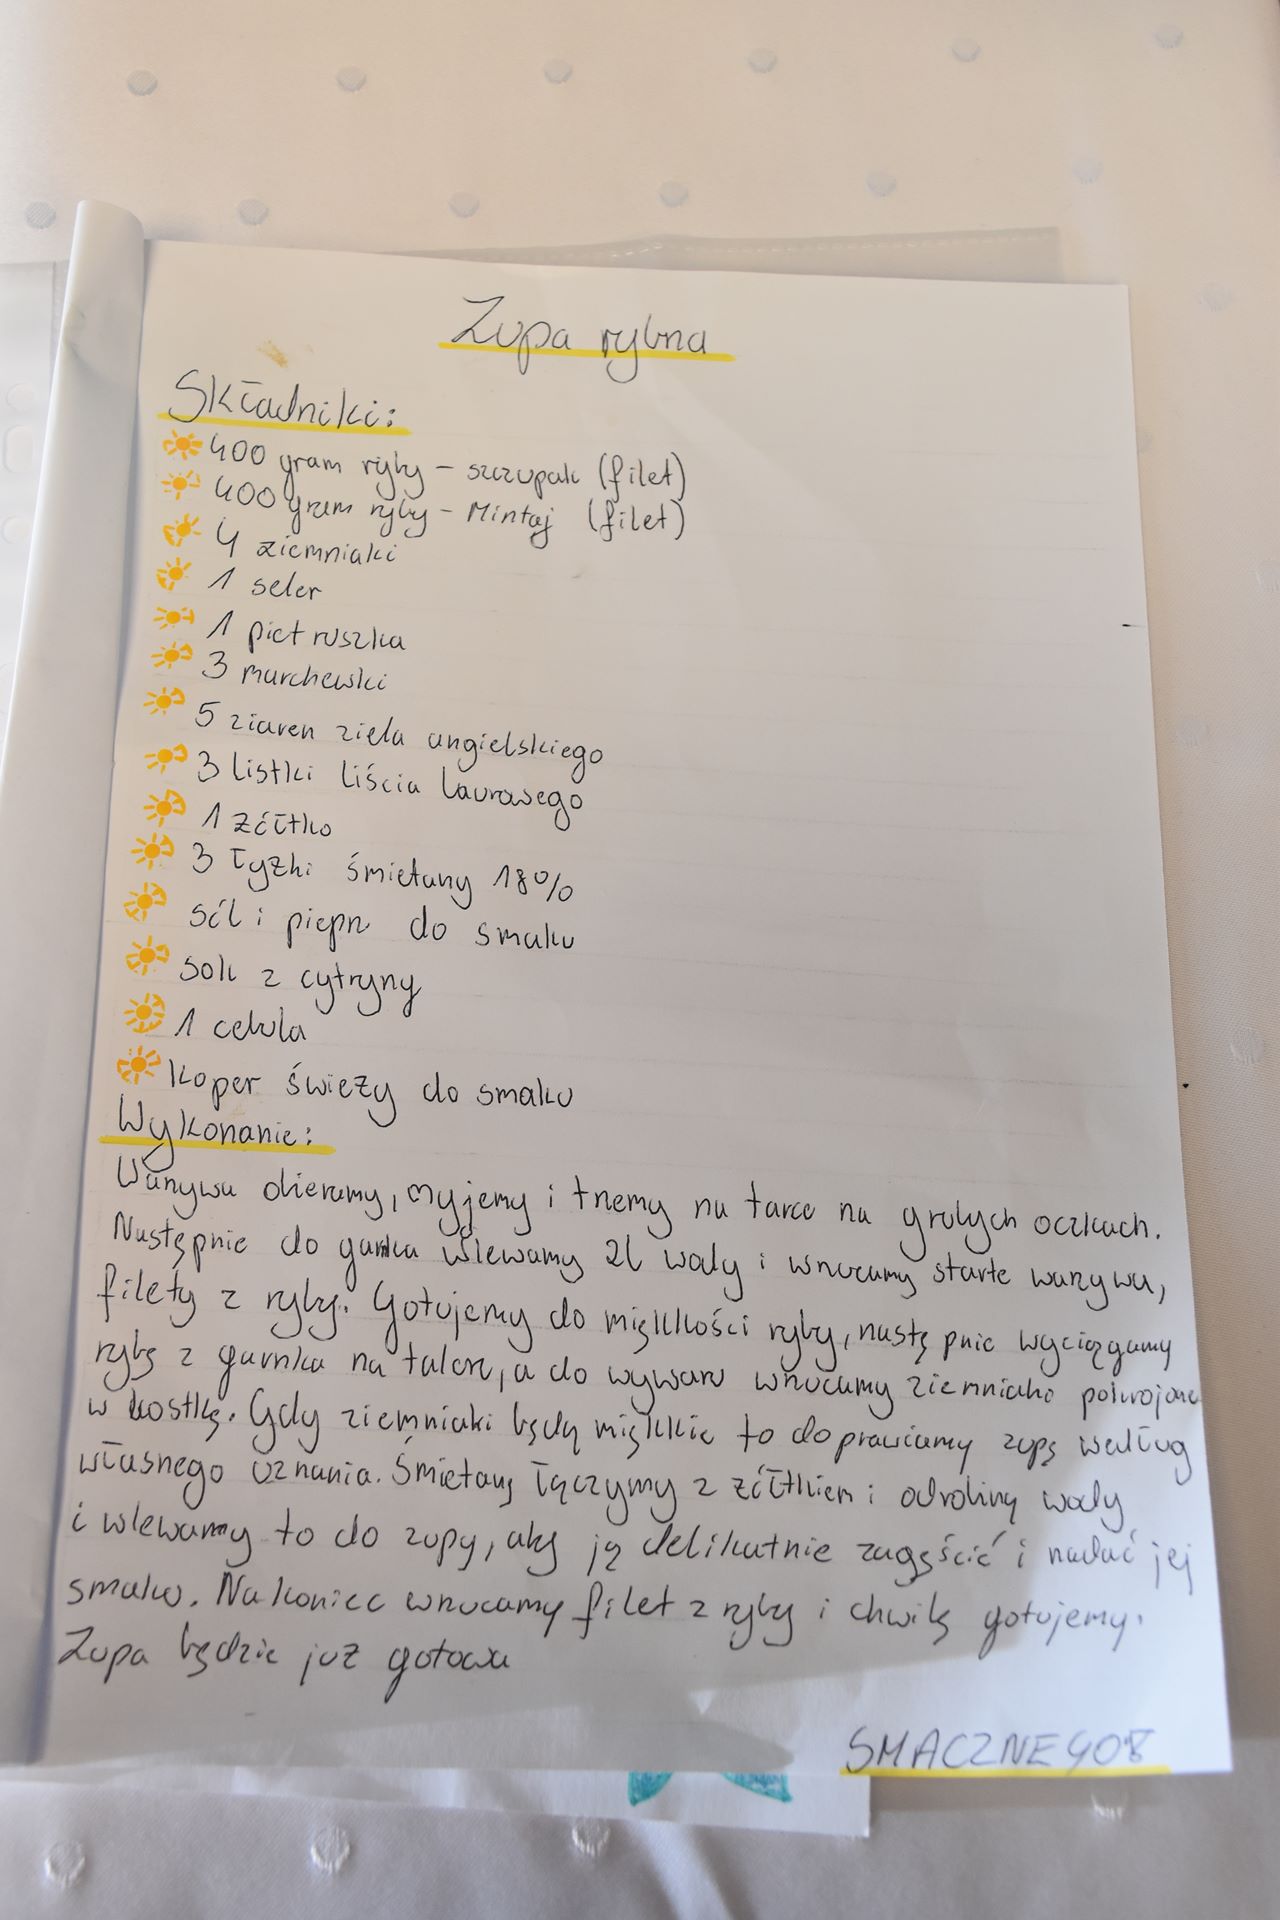 Zupa rybna
Składniki:
400 gram ryby - szczupak (filet)
400 gram ryby - Mintaj (filet)
4 ziemniaki
1 seler
1 pietruszka
3 marchewki
5 ziaren ziela angielskiego
3 listki liścia laurowego
1 żółtko
3 łyżki śmietany 18%
sól i pieprz do smaku
sok z cytryny
1 cebula
koper świeży do smaku
Wykonanie:
Warzywa obieramy, myjemy i trzemy na tarce na grubych oczkach.
Następnie do garnka wlewamy 2l wody i wrzucamy starte warzywa,
filety z ryby. Gotujemy do miękkości ryby, następnie wyciągamy
rybę z garnka na talerz, a do wywaru wrzucamy ziemniaka pokrojone
w kostkę. Gdy ziemniaki będą miękkie to doprawiamy zupę według
własnego uznania. Śmietanę łączymy z żółtkiem i odrobiną wody
i wlewamy to do zupy, aby ją delikatnie zagęścić i nadać jej
smaku. Na koniec wrzucamy filet z ryby i chwilę gotujemy.
Zupa będzie już gotowa
SMACZNEGO